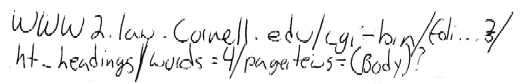 WWW2.law.Cornell.edu/cgi-bin/foli...3/
ht_headings/words=4/pageitems=(body)?